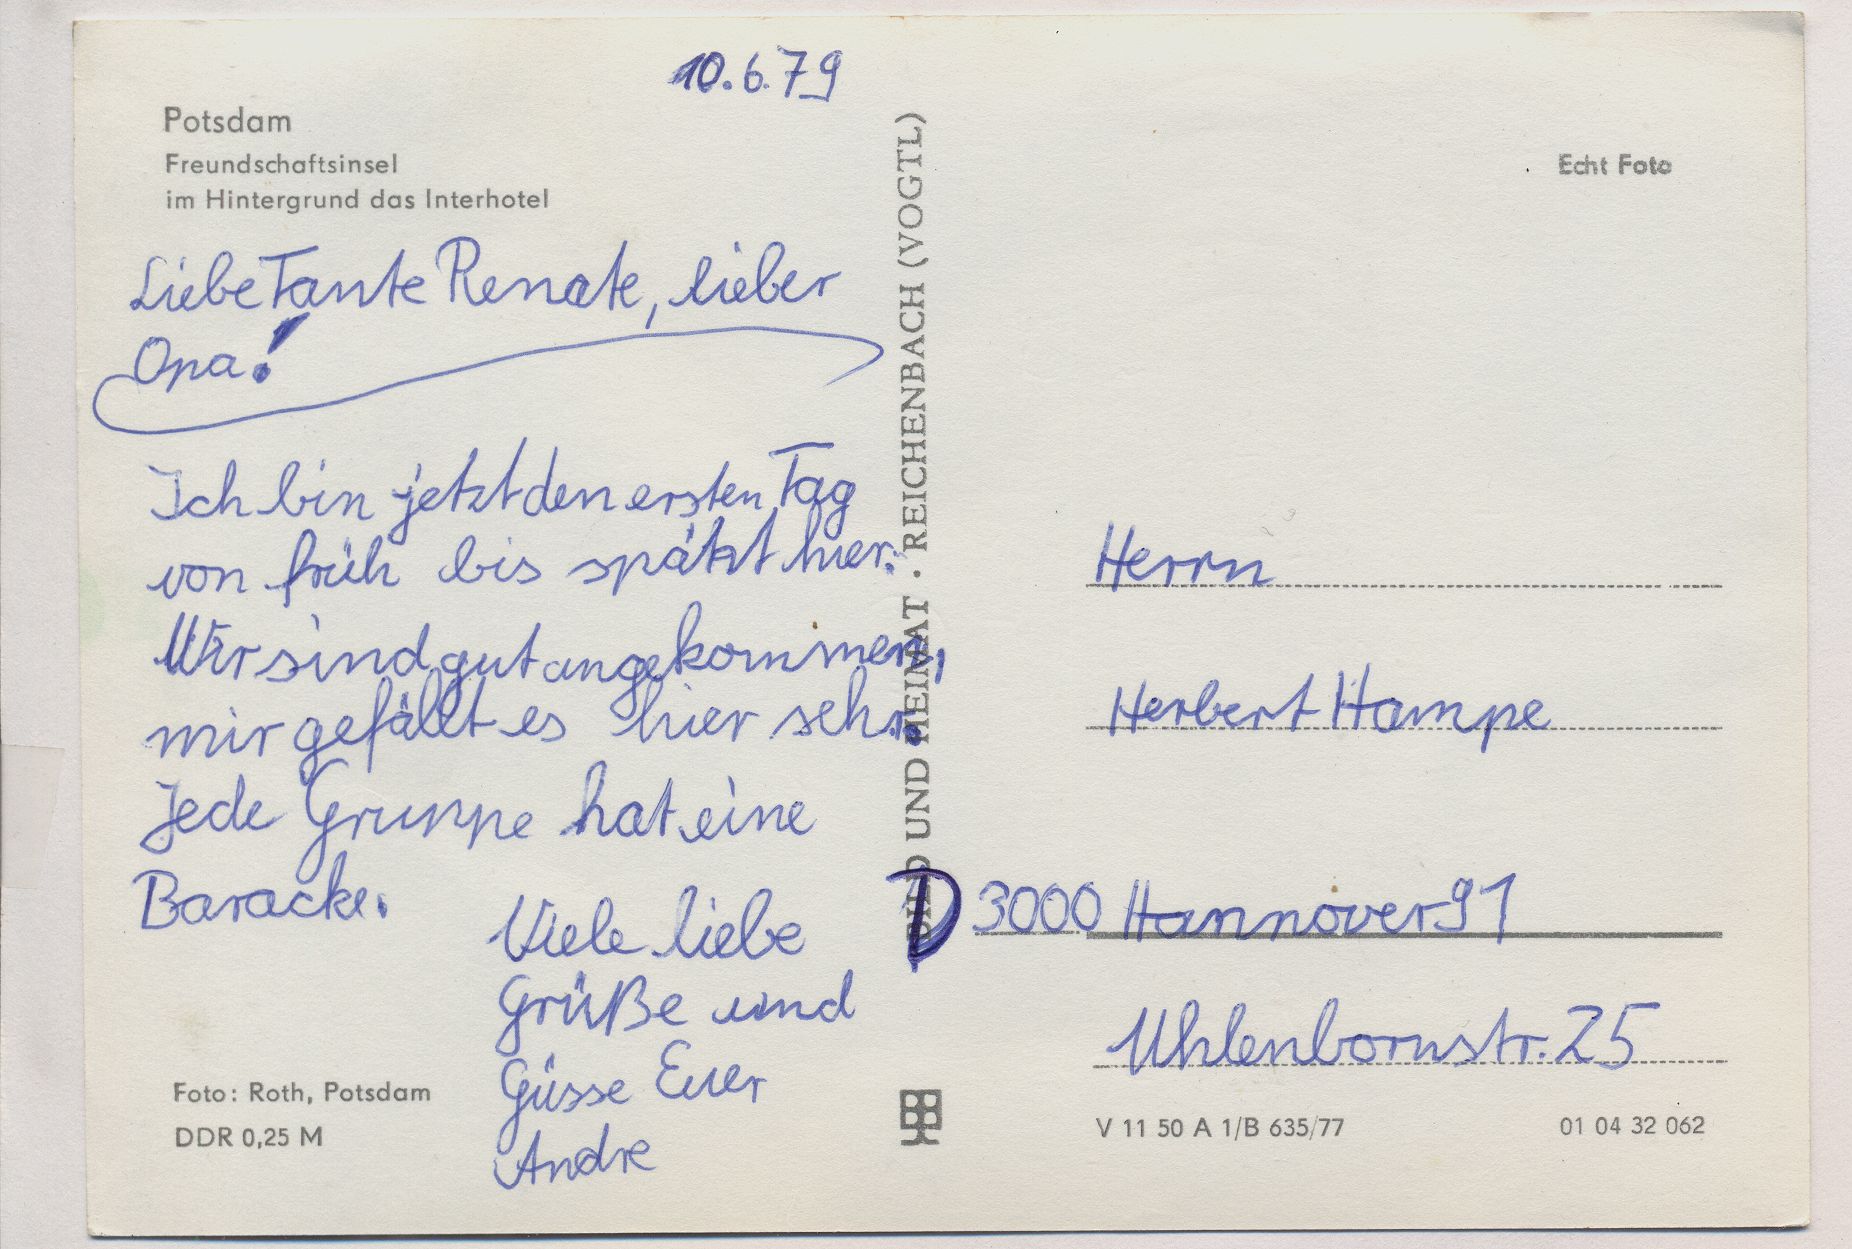 10.6.79
Potsdam
Freundschaftsinsel
im Hintergrund das Interhotel
Liebe Tante Renate, lieber
Opa!
Ich bin jetzt den ersten Tag
von früh bis spätzt hier.
Wir sind gut angekommen,
mir gefällt es hier sehr.
Jede Gruppe hat eine
Baracke.
Viele liebe
Grüße und
Güsse Euer
Andre
Foto: Roth, Potsdam
DDR 0,25 M
BILD UND HEIMAT · REICHENBACH (VOGTL)
Echt Foto
Herrn
Herbert Hampe
D 3000 Hannover 91
Uhlenbornstr. 25
V 11 50 A 1/B 635/77
01 04 32 062